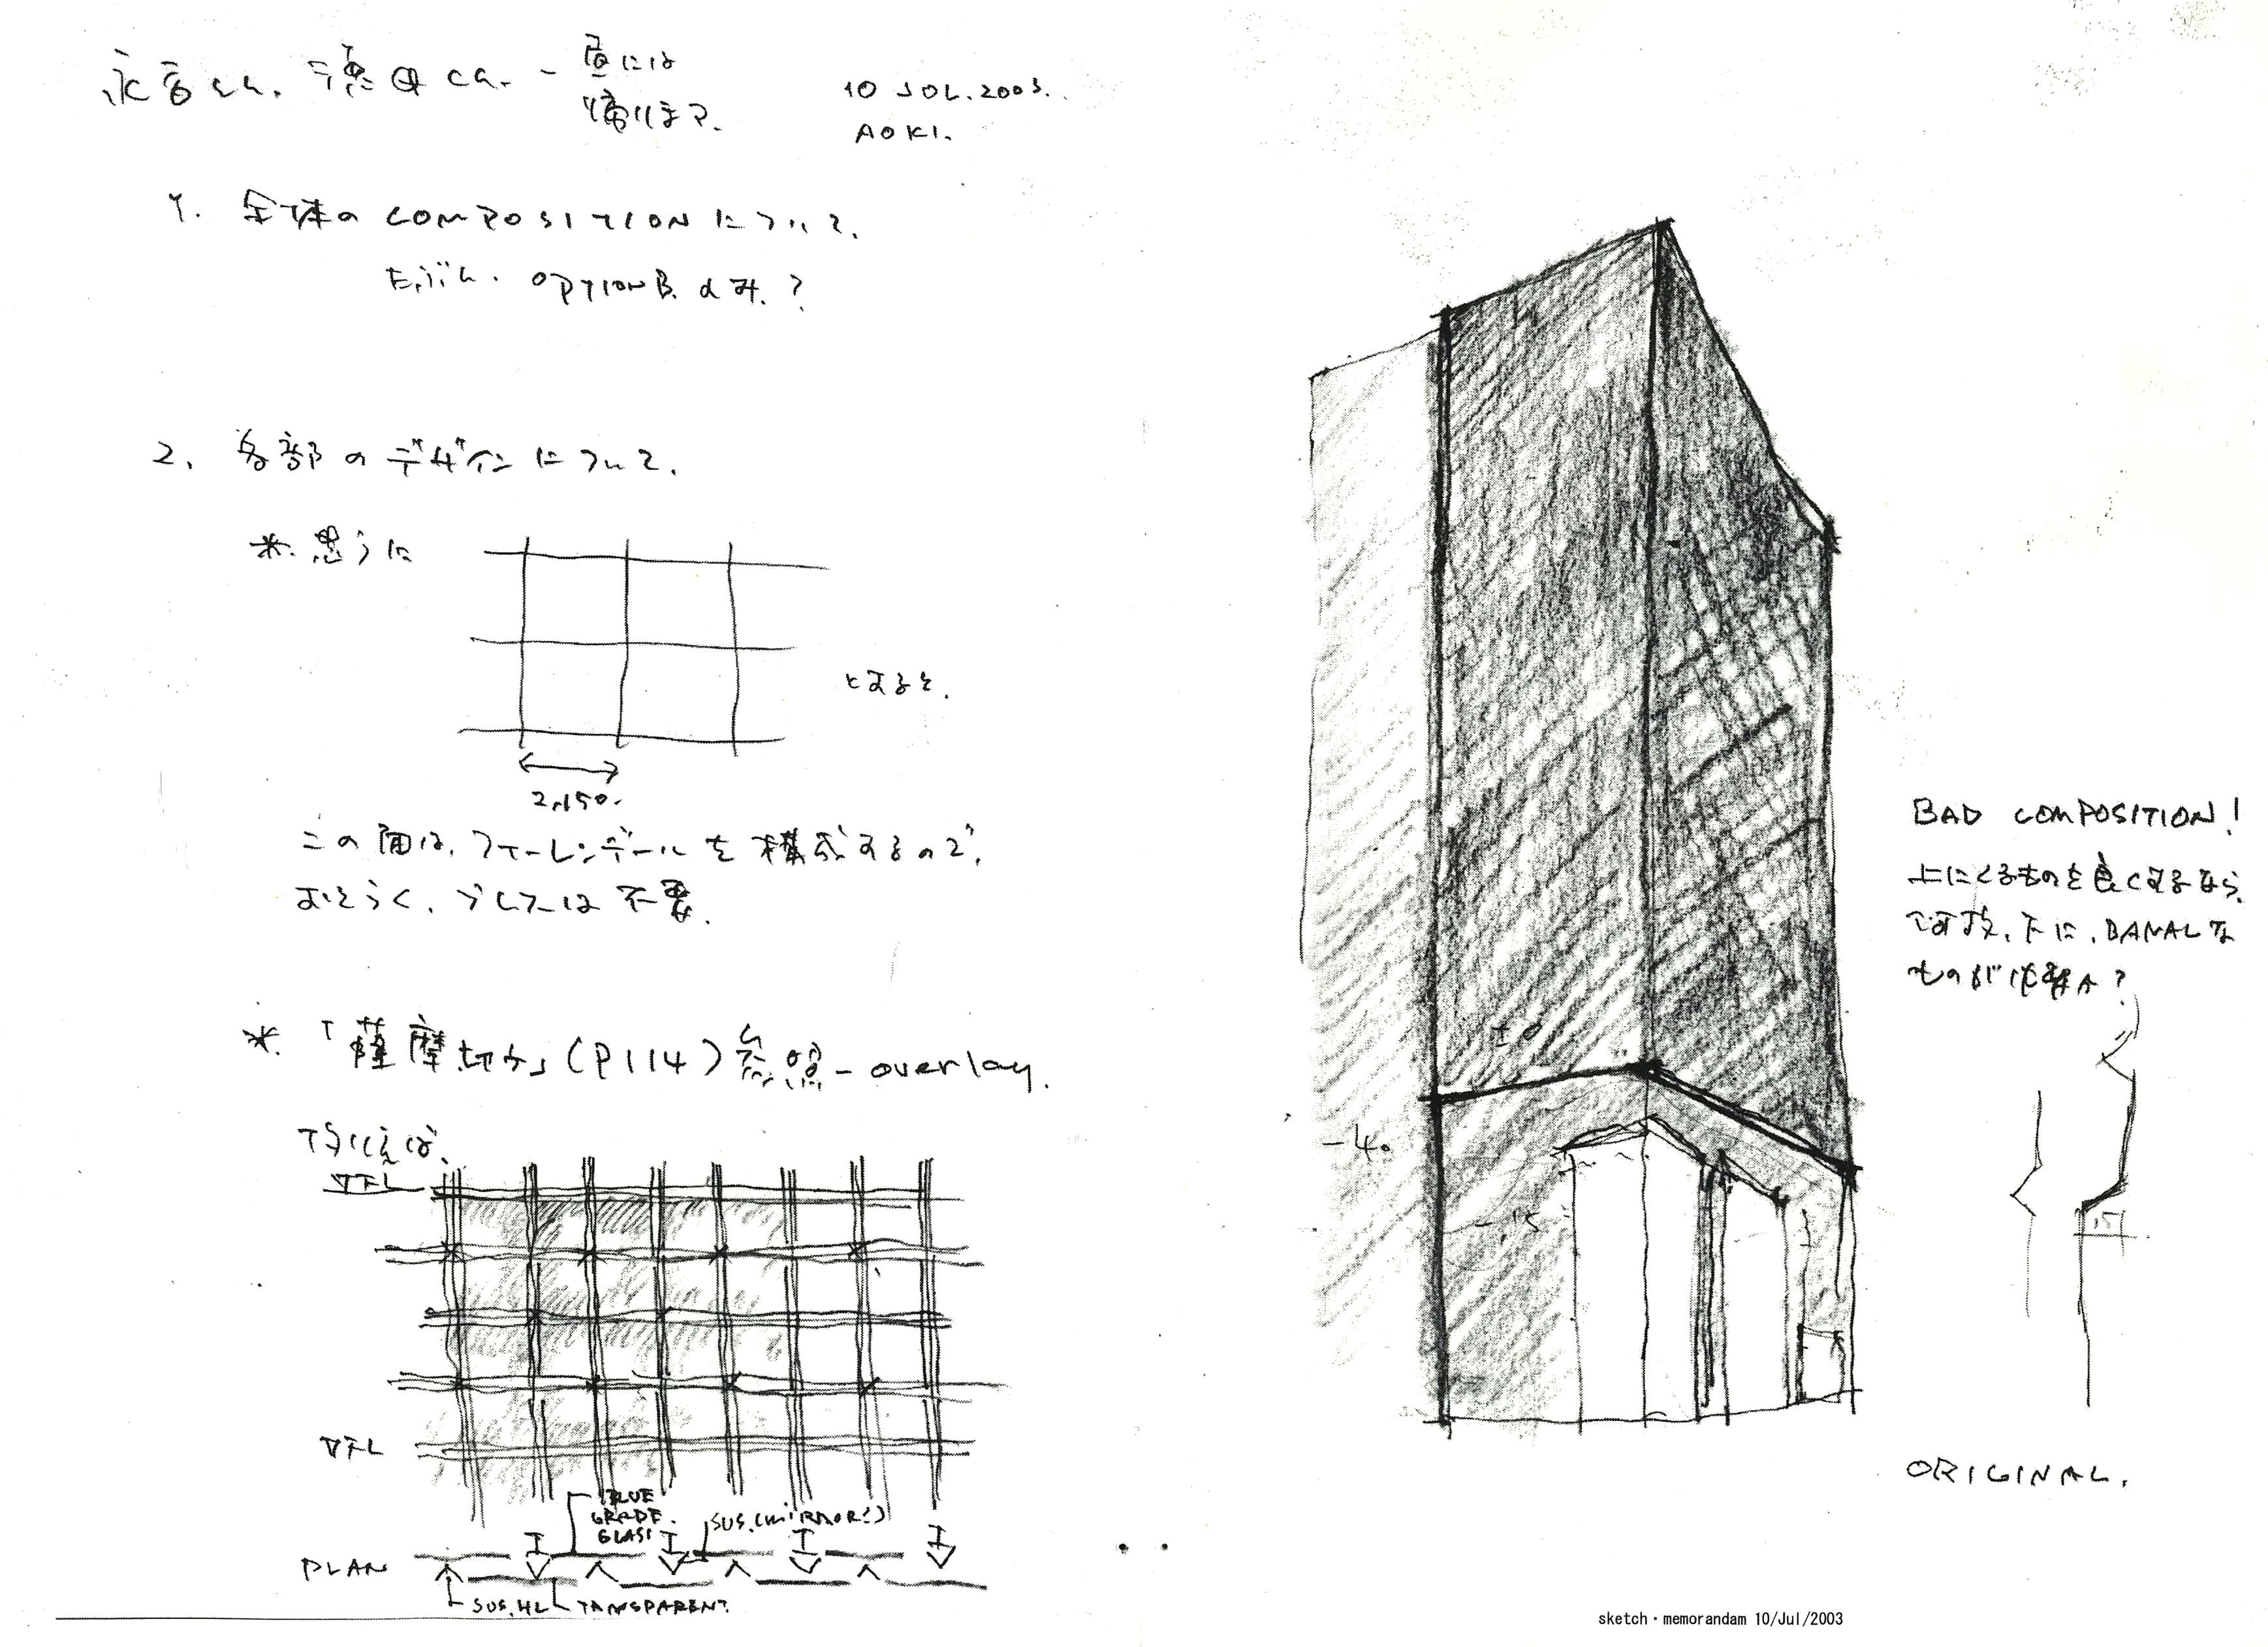 永吉さん、徳田さん. - 昼には
帰ります.
10 JUL.2003.
AOKI.
1. 全体の COMPOSITION について.
たぶん. OPTION B. のみ.?
2. 各部のデザインについて.
*. 思うに
とすると.
2,150.
この面は、フィーレンデールを構成するので、
おそらく、ブレースは不要.
*. 「薩摩切子」(P114)参照 - overlay.
たとえば、
▽FL
▽FL
BLUE
GRADE.
GLASS
SUS.(MIRROR?)
PLAN
SUS.HL
TANSPARENT.
±0
-40
-15
BAD COMPOSITION!
上にくるものを良くするなら、
何故、下に、BANALな
ものが必要か?
15
ORIGINAL.
sketch・memorandam 10/Jul/2003